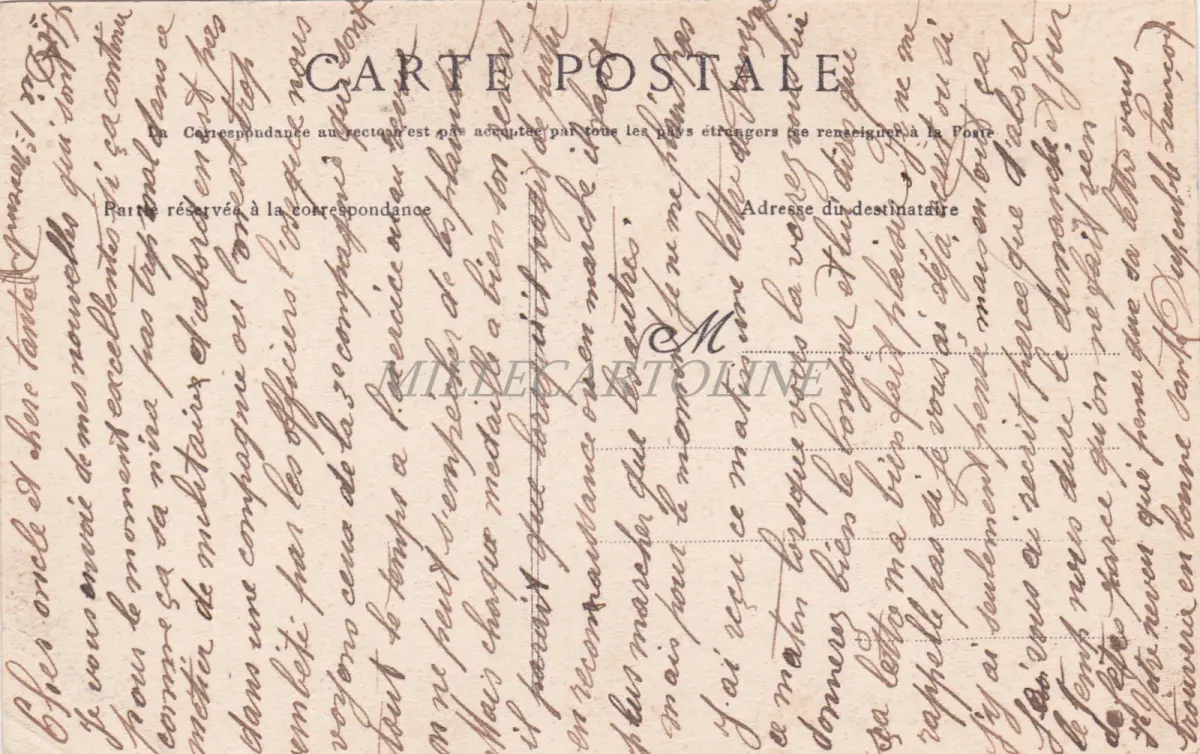 CARTE POSTALE
La Correspondance au recto n'est pas acceptée par tous les pays étrangers (se renseigner à la Poste
Partie réservée à la correspondance
Adresse du destinataire
M
MILLECARTOLINE
Ches oncle et chere tante
Je vous envoie de mes nouvelles qui sont
pour le moment excellentes, si ça continue
comme ça sa vira pas trop mal dans ce
métier de militaire d'abord on est pas
dans une compagnie ou l'on est trop
embêté par les officiers l'orsque nous
voyons ceux de la 3e compagnie qui sont
tout le temps a l'exercice
on ne peut s'empêcher de les plaindre
Mais chaque medaille a bien son revers
il parait que lorsqu'il s'agit de partir
en reconnaissance ou en marche il faut
plus marcher que les autres.
mais pour le moment je ne me plains pas
J'ai reçu ce matin une lettre de
ce matin lorsque vous la voyez vous lui
donnerez bien le bonjour et lui dire que
sa lettre m'a bien fait plaisir, je ne me
rappelle pas si je vous ai déjà écrit ou si
j'ai seulement pensé mais en tout ça
je vous ai écrit parce que d'abord
le temp nous dure le dimanche et jour
de fêtes parce qu'on ne fait rien
Votre neveu qui pense que sa lettre vous
trouvera en bonne santé Dupenblé François